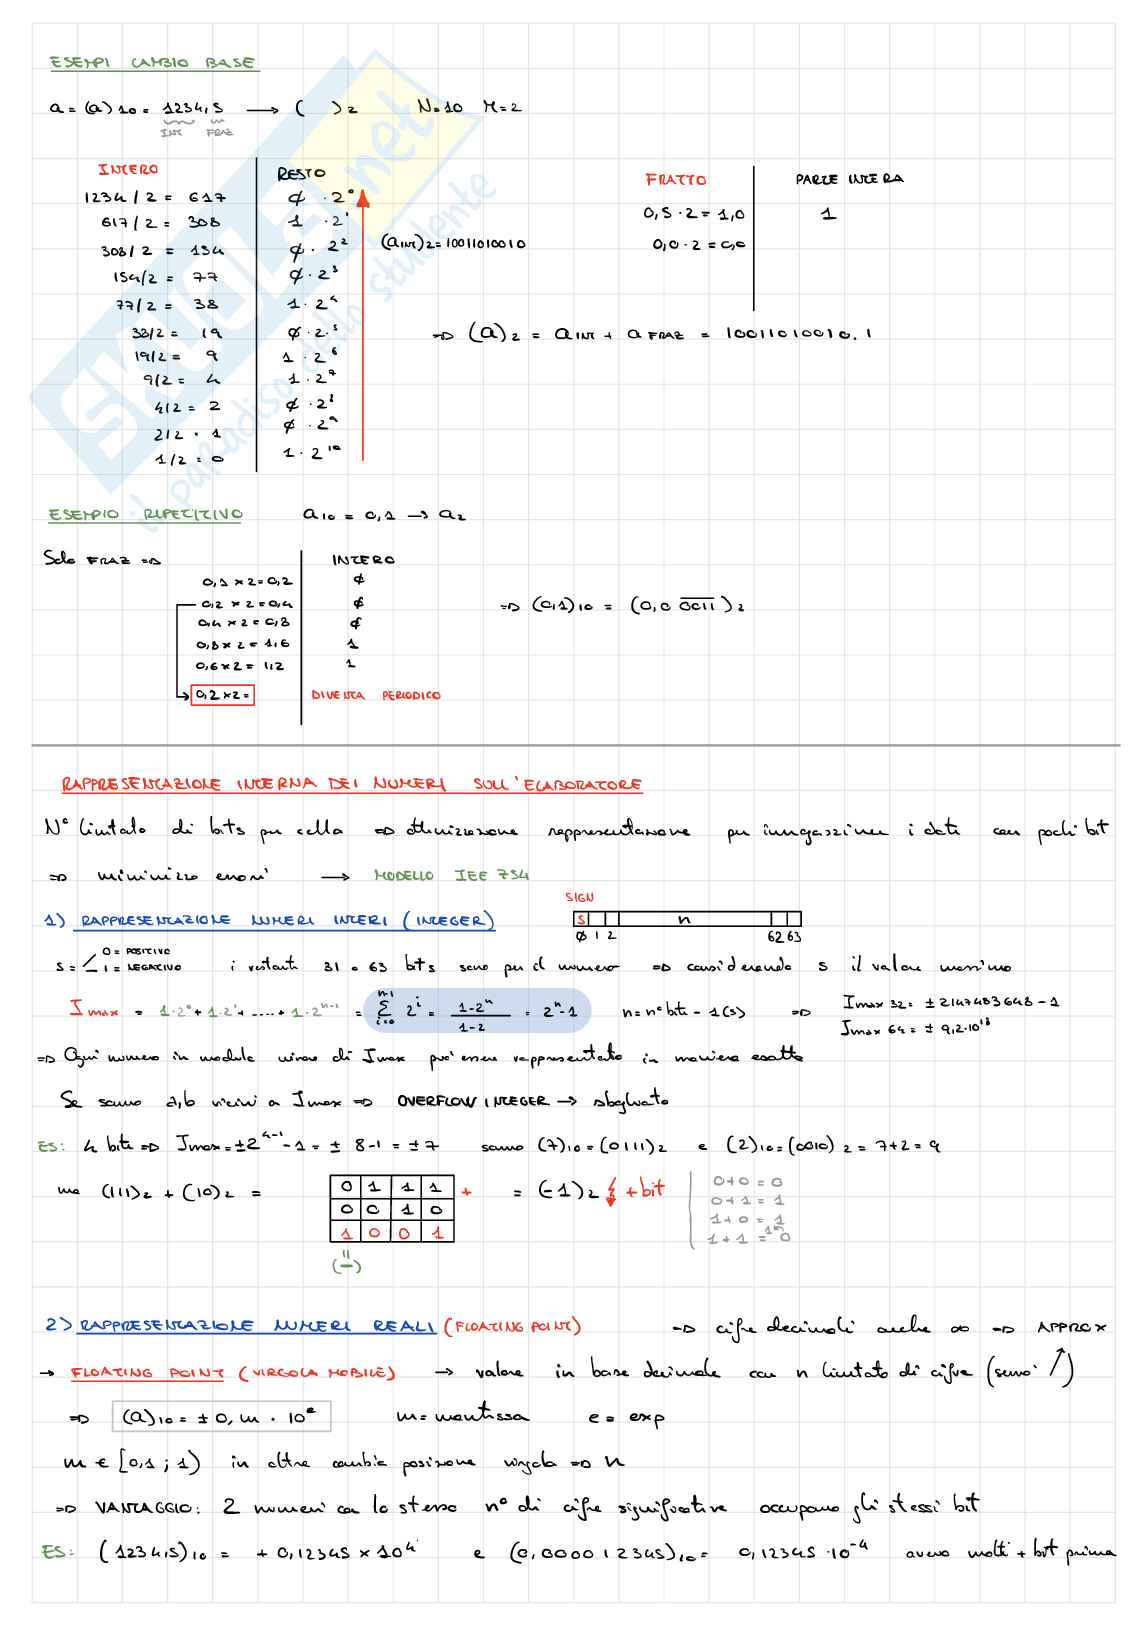 ESEMPI CAMBIO BASE
a = (a)10 = 1234,5 → ( )2 N=10 M=2
INT FRAZ
INTERO RESTO
1234 / 2 = 617 ø · 2⁰
617 / 2 = 308 1 · 2¹
308 / 2 = 154 ø · 2²
154/2 = 77 ø · 2³
77/2 = 38 1 · 2⁴
38/2 = 19 ø · 2⁵
19/2 = 9 1 · 2⁶
9/2 = 4 1 · 2⁷
4/2 = 2 ø · 2⁸
2/2 · 1 ø · 2⁹
1/2 = 0 1 · 2¹⁰
(aINT)2 = 10011010010
FRATTO PARTE INTERA
0,5 · 2 = 1,0 1
0,0 · 2 = 0,0
⇒ (a)2 = aINT + aFRAZ = 10011010010.1
SKUOLA.net
il paradiso dello studente
ESEMPIO RIPETITIVO a10 = 0,1 → a2
Solo FRAZ ⇒ INTERO
0,1 × 2 = 0,2 ø
0,2 × 2 = 0,4 ø
0,4 × 2 = 0,8 ø
0,8 × 2 = 1,6 1
0,6 × 2 = 1,2 1
0,2 × 2 = DIVENTA PERIODICO
⇒ (0,1)10 = (0,0 0̅0̅1̅1̅)2
RAPPRESENTAZIONE INTERNA DEI NUMERI SULL'ELABORATORE
N° limitato di bits per cella ⇒ ottimizzazione rappresentazione per immagazzinare i dati con pochi bit
⇒ minimizzo errori → MODELLO IEE 754
1) RAPPRESENTAZIONE NUMERI INTERI (INTEGER)
SIGN
S n
ø 1 2 62 63
s = 0 = POSITIVO
1 = NEGATIVO i restanti 31 o 63 bits sono per il numero ⇒ considerando s il valore massimo
Imax = 1·2⁰ + 1·2¹ + .... + 1·2ⁿ⁻¹ = Σ i=0 n-1 2ⁱ = 1-2ⁿ / 1-2 = 2ⁿ-1 n = n° bit - 1 (s) ⇒ Imax 32 = ± 2147483648 - 1
Imax 64 = ± 9,2·10¹⁸
⇒ Ogni numero in modulo minore di Imax può essere rappresentato in maniera esatta
Se sono a,b vicini a Imax ⇒ OVERFLOW INTEGER → sbagliato
ES: 4 bit ⇒ Imax = ±2⁴⁻¹ - 1 = ± 8-1 = ± 7 sono (7)10 = (0111)2 e (2)10 = (0010)2 = 7+2 = 9
ma (111)2 + (10)2 = = (-1)2 + bit
0 1 1 1 +
0 0 1 0
1 0 0 1
"
(-)
0+0 = 0
0+1 = 1
1+0 = 1
1+1 = ¹⁾0
2) RAPPRESENTAZIONE NUMERI REALI (FLOATING POINT) ⇒ cifre decimali anche ∞ ⇒ APPROX
→ FLOATING POINT (VIRGOLA MOBILE) → valore in base decimale con n limitato di cifre (semò ↗)
⇒ (a)10 = ± 0,m · 10ᵉ m = mantissa e = exp
m ∈ [0,1 ; 1) in oltre cambia posizione virgola ⇒ n
⇒ VANTAGGIO: 2 numeri con lo stesso n° di cifre significative occupano gli stessi bit
ES: (1234,5)10 = + 0,12345 × 10⁴ e (0,000012345)10 = 0,12345 · 10⁻⁴ avevo molti + bit prima